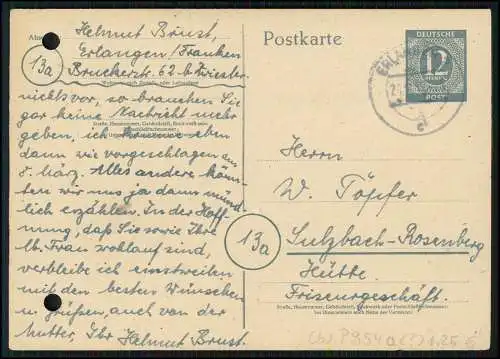 Abs.: Helmut Brust,
Erlangen/Franken
13a Bruckerstr. 62 b. Zriester
Wohnort, auch Zustell- oder Leitpostamt
nichts vor, so brauchen Sie
gar keine Nachricht mehr
Straße, Hausnummer, Gebäudeteil, Stockwerk oder
Postschließfachnummer;
geben, ich komme eben
dann wie vorgeschlagen am
8. März. Alles andere könn-
ten wir uns ja dann münd-
lich erzählen. In der Hoff-
nung, daß Sie sowie Ihre
lb. Frau wohlauf sind,
verbleibe ich einstweilen
mit den besten Wünschen
u. grüßen, auch von der
Mutter, Ihr Helmut Brust.
Postkarte
DEUTSCHE
12
PFENNIG
POST
ERLANGEN
c
Herrn
W. Töpfer
13a
Sulzbach-Rosenberg
Hütte
Friseurgeschäft.
Straße, Hausnummer, Gebäudeteil, Stockwerk oder Postschließfachnummer;
bei Untermietern auch Name des Vermieters
(b) P 954 a (1) 1.25